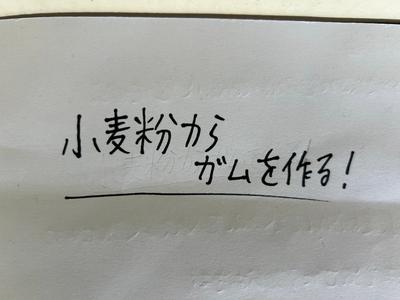 小麦粉から
ガムを作る!